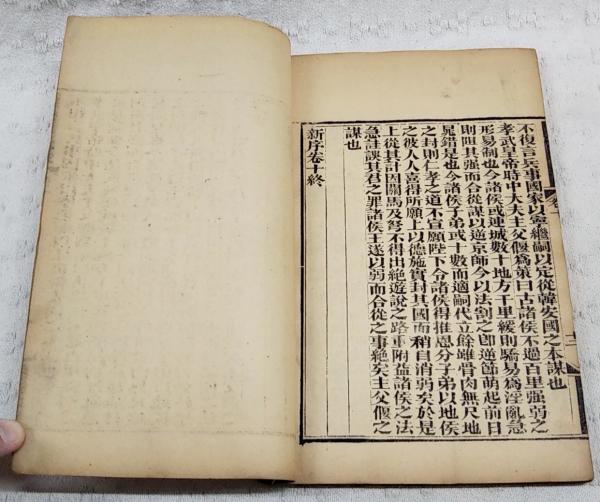 不復言兵事國家以寧繼嗣以定從韓安國之本謀也
孝武皇帝時中大夫主父偃爲策曰古諸侯不過百里强弱之
形易制也今諸侯或連城數十地方千里緩則驕易爲淫亂急
則阻其强而合從謀以逆京師今以法割之卽逆節萌起前日
晁錯是也今諸侯子弟或十數而適嗣代立餘雖骨肉無尺地
之封則仁孝之道不宣願陛下令諸侯得推恩分子弟以地侯
之彼人人喜得所願上以德施實封其國而稍自消弱矣於是
上從其計因關馬及弩不得出絶遊說之路重附益諸侯之法
急詿誤其君之罪諸侯王遂以弱而合從之事絶矣主父偃之
謀也
新序卷十終